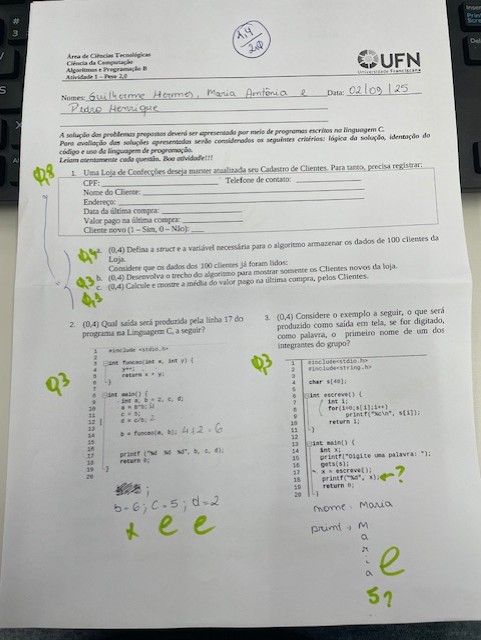 1,4
2,0
Área de Ciências Tecnológicas
Ciência da Computação
Algoritmos e Programação B
Atividade 1 – Peso 2,0
UFN
Universidade Franciscana
Nomes: Guilherme Hermes, Maria Antônia e Data: 02/09/25
Pedro Henrique
A solução dos problemas propostos deverá ser apresentada por meio de programas escritos na linguagem C.
Para avaliação das soluções apresentadas serão considerados os seguintes critérios: lógica da solução, identação do
código e uso da linguagem de programação.
Leiam atentamente cada questão. Boa atividade!!!
0,8
1. Uma Loja de Confecções deseja manter atualizada seu Cadastro de Clientes. Para tanto, precisa registrar:
CPF: Telefone de contato:
Nome do Cliente:
Endereço:
Data da última compra:
Valor pago na última compra:
Cliente novo (1 – Sim, 0 – Não):
a. (0,4) Defina a struct e a variável necessária para o algoritmo armazenar os dados de 100 clientes da
Loja.
Considere que os dados dos 100 clientes já foram lidos:
0,3 b. (0,4) Desenvolva o trecho do algoritmo para mostrar somente os Clientes novos da loja.
c. (0,4) Calcule e mostre a média do valor pago na última compra, pelos Clientes.
2. (0,4) Qual saída será produzida pela linha 17 do
programa na Linguagem C, a seguir?
0,3
1 #include <stdio.h>
2
3 int funcao(int x, int y) {
4 y++;
5 return x + y;
6 }
7
8 int main() {
9 int a, b = 2, c, d;
10 a = b*b; 4
11 c = 5;
12 d = c/b; 2
13
14 b = funcao(a, b); 4+2=6
15
16
17 printf ("%d %d %d", b, c, d);
18 return 0;
19 }
20
b=6; c=5; d=2
x e e
3. (0,4) Considere o exemplo a seguir, o que será
produzido como saída em tela, se for digitado,
como palavra, o primeiro nome de um dos
integrantes do grupo?
0,3
1 #include<stdio.h>
2 #include<string.h>
3
4 char s[40];
5
6 int escreve() {
7 int i;
8 for(i=0;s[i];i++)
9 printf("%c\n", s[i]);
10 return i;
11 }
12
13 int main() {
14 int x;
15 printf("Digite uma palavra: ");
16 gets(s);
17 x = escreve();
18 printf("%d", x); ?
19 return 0;
20 }
nome: Maria
print: M
a
r
i
a
e
5?